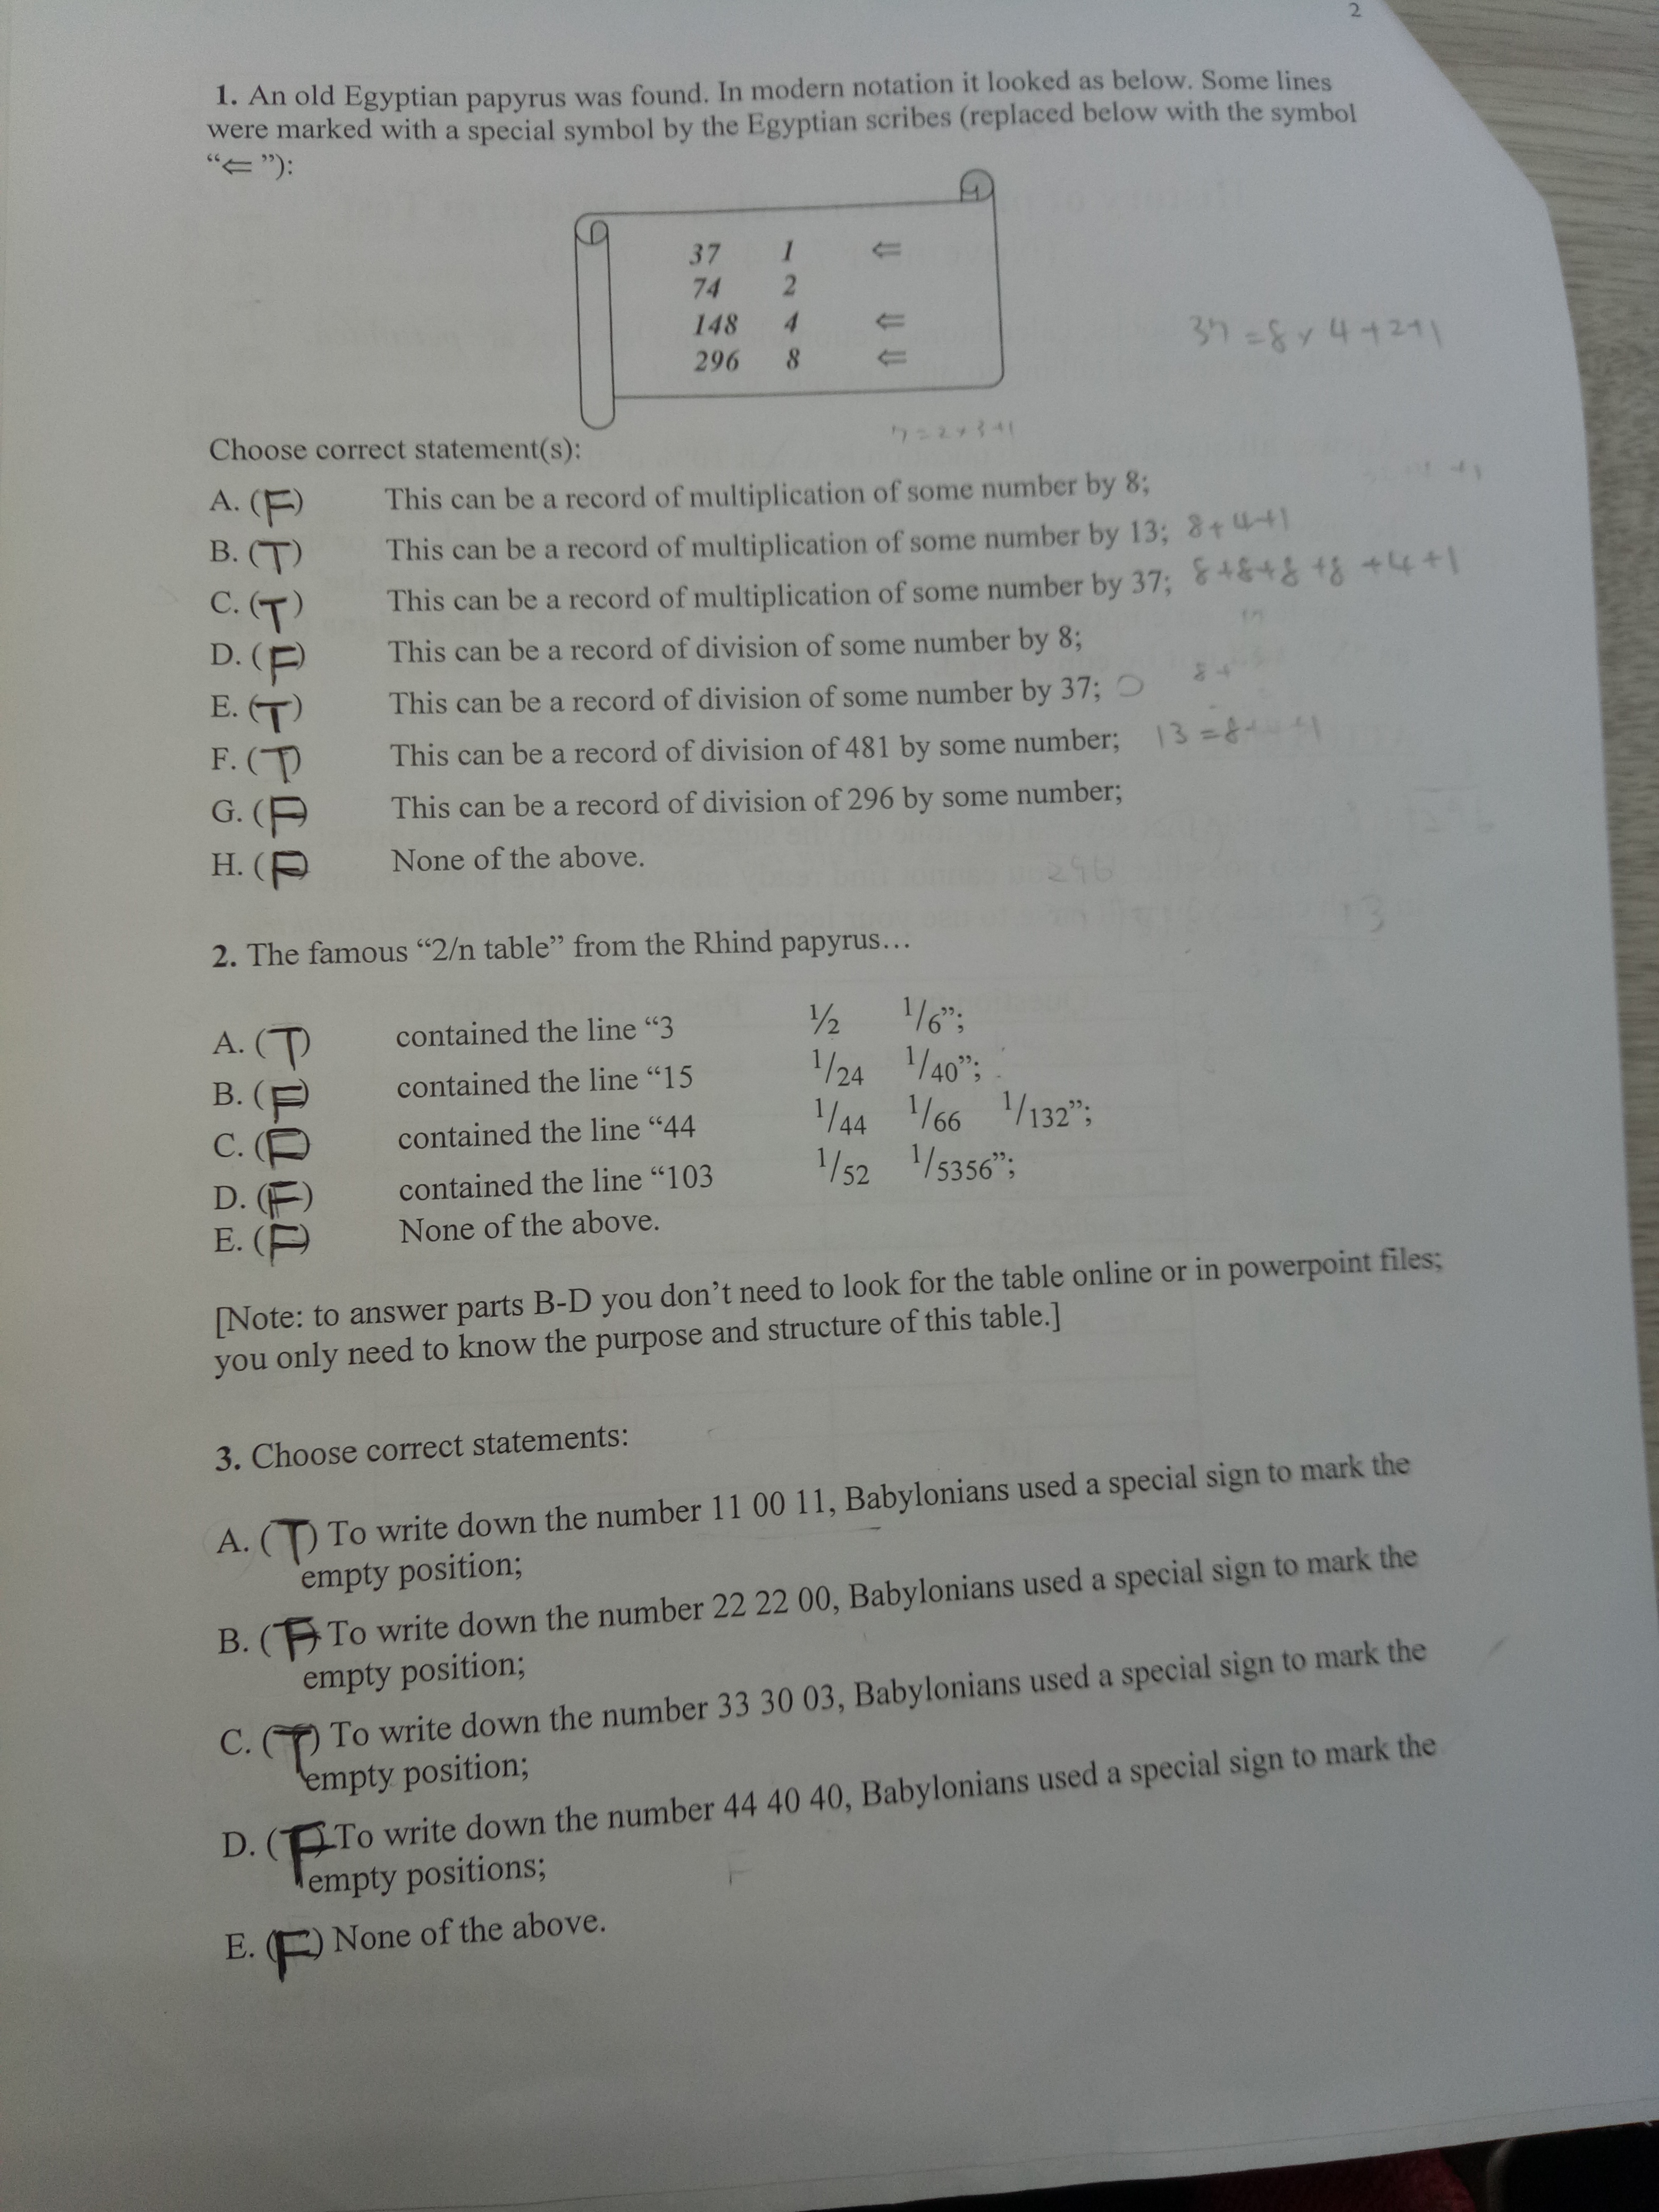 2
1. An old Egyptian papyrus was found. In modern notation it looked as below. Some lines
were marked with a special symbol by the Egyptian scribes (replaced below with the symbol
“⇐”):
37 1 ⇐
74 2
148 4 ⇐
296 8 ⇐
37 = 8 × 4 + 2 + 1
7 = 2 × 3 + 1
Choose correct statement(s):
A. (F) This can be a record of multiplication of some number by 8;
B. (T) This can be a record of multiplication of some number by 13; 8 + 4 + 1
C. (T) This can be a record of multiplication of some number by 37; 8 + 8 + 8 + 8 + 4 + 1
D. (F) This can be a record of division of some number by 8;
E. (T) This can be a record of division of some number by 37; 8 +
F. (T) This can be a record of division of 481 by some number; 13 = 8 + 1
G. (F) This can be a record of division of 296 by some number;
H. (F) None of the above.
296
2. The famous “2/n table” from the Rhind papyrus…
A. (T) contained the line “3 ½ 1/6”;
B. (F) contained the line “15 1/24 1/40”;
C. (F) contained the line “44 1/44 1/66 1/132”;
D. (F) contained the line “103 1/52 1/5356”;
E. (F) None of the above.
[Note: to answer parts B-D you don’t need to look for the table online or in powerpoint files;
you only need to know the purpose and structure of this table.]
3. Choose correct statements:
A. (T) To write down the number 11 00 11, Babylonians used a special sign to mark the
empty position;
B. (F) To write down the number 22 22 00, Babylonians used a special sign to mark the
empty position;
C. (T) To write down the number 33 30 03, Babylonians used a special sign to mark the
empty position;
D. (F) To write down the number 44 40 40, Babylonians used a special sign to mark the
empty positions;
F
E. (F) None of the above.